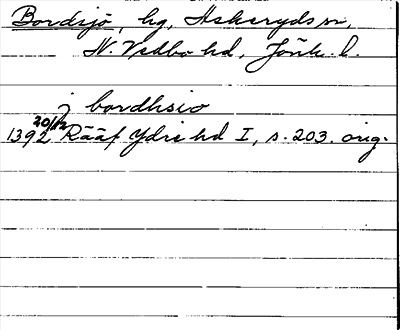 Bordsjö, hg, Askeryds sn,
N. Vedbo hd, Jönk. l.
j bordhsio
20/12
1392 Rääf Ydre hd I, s. 203. orig.